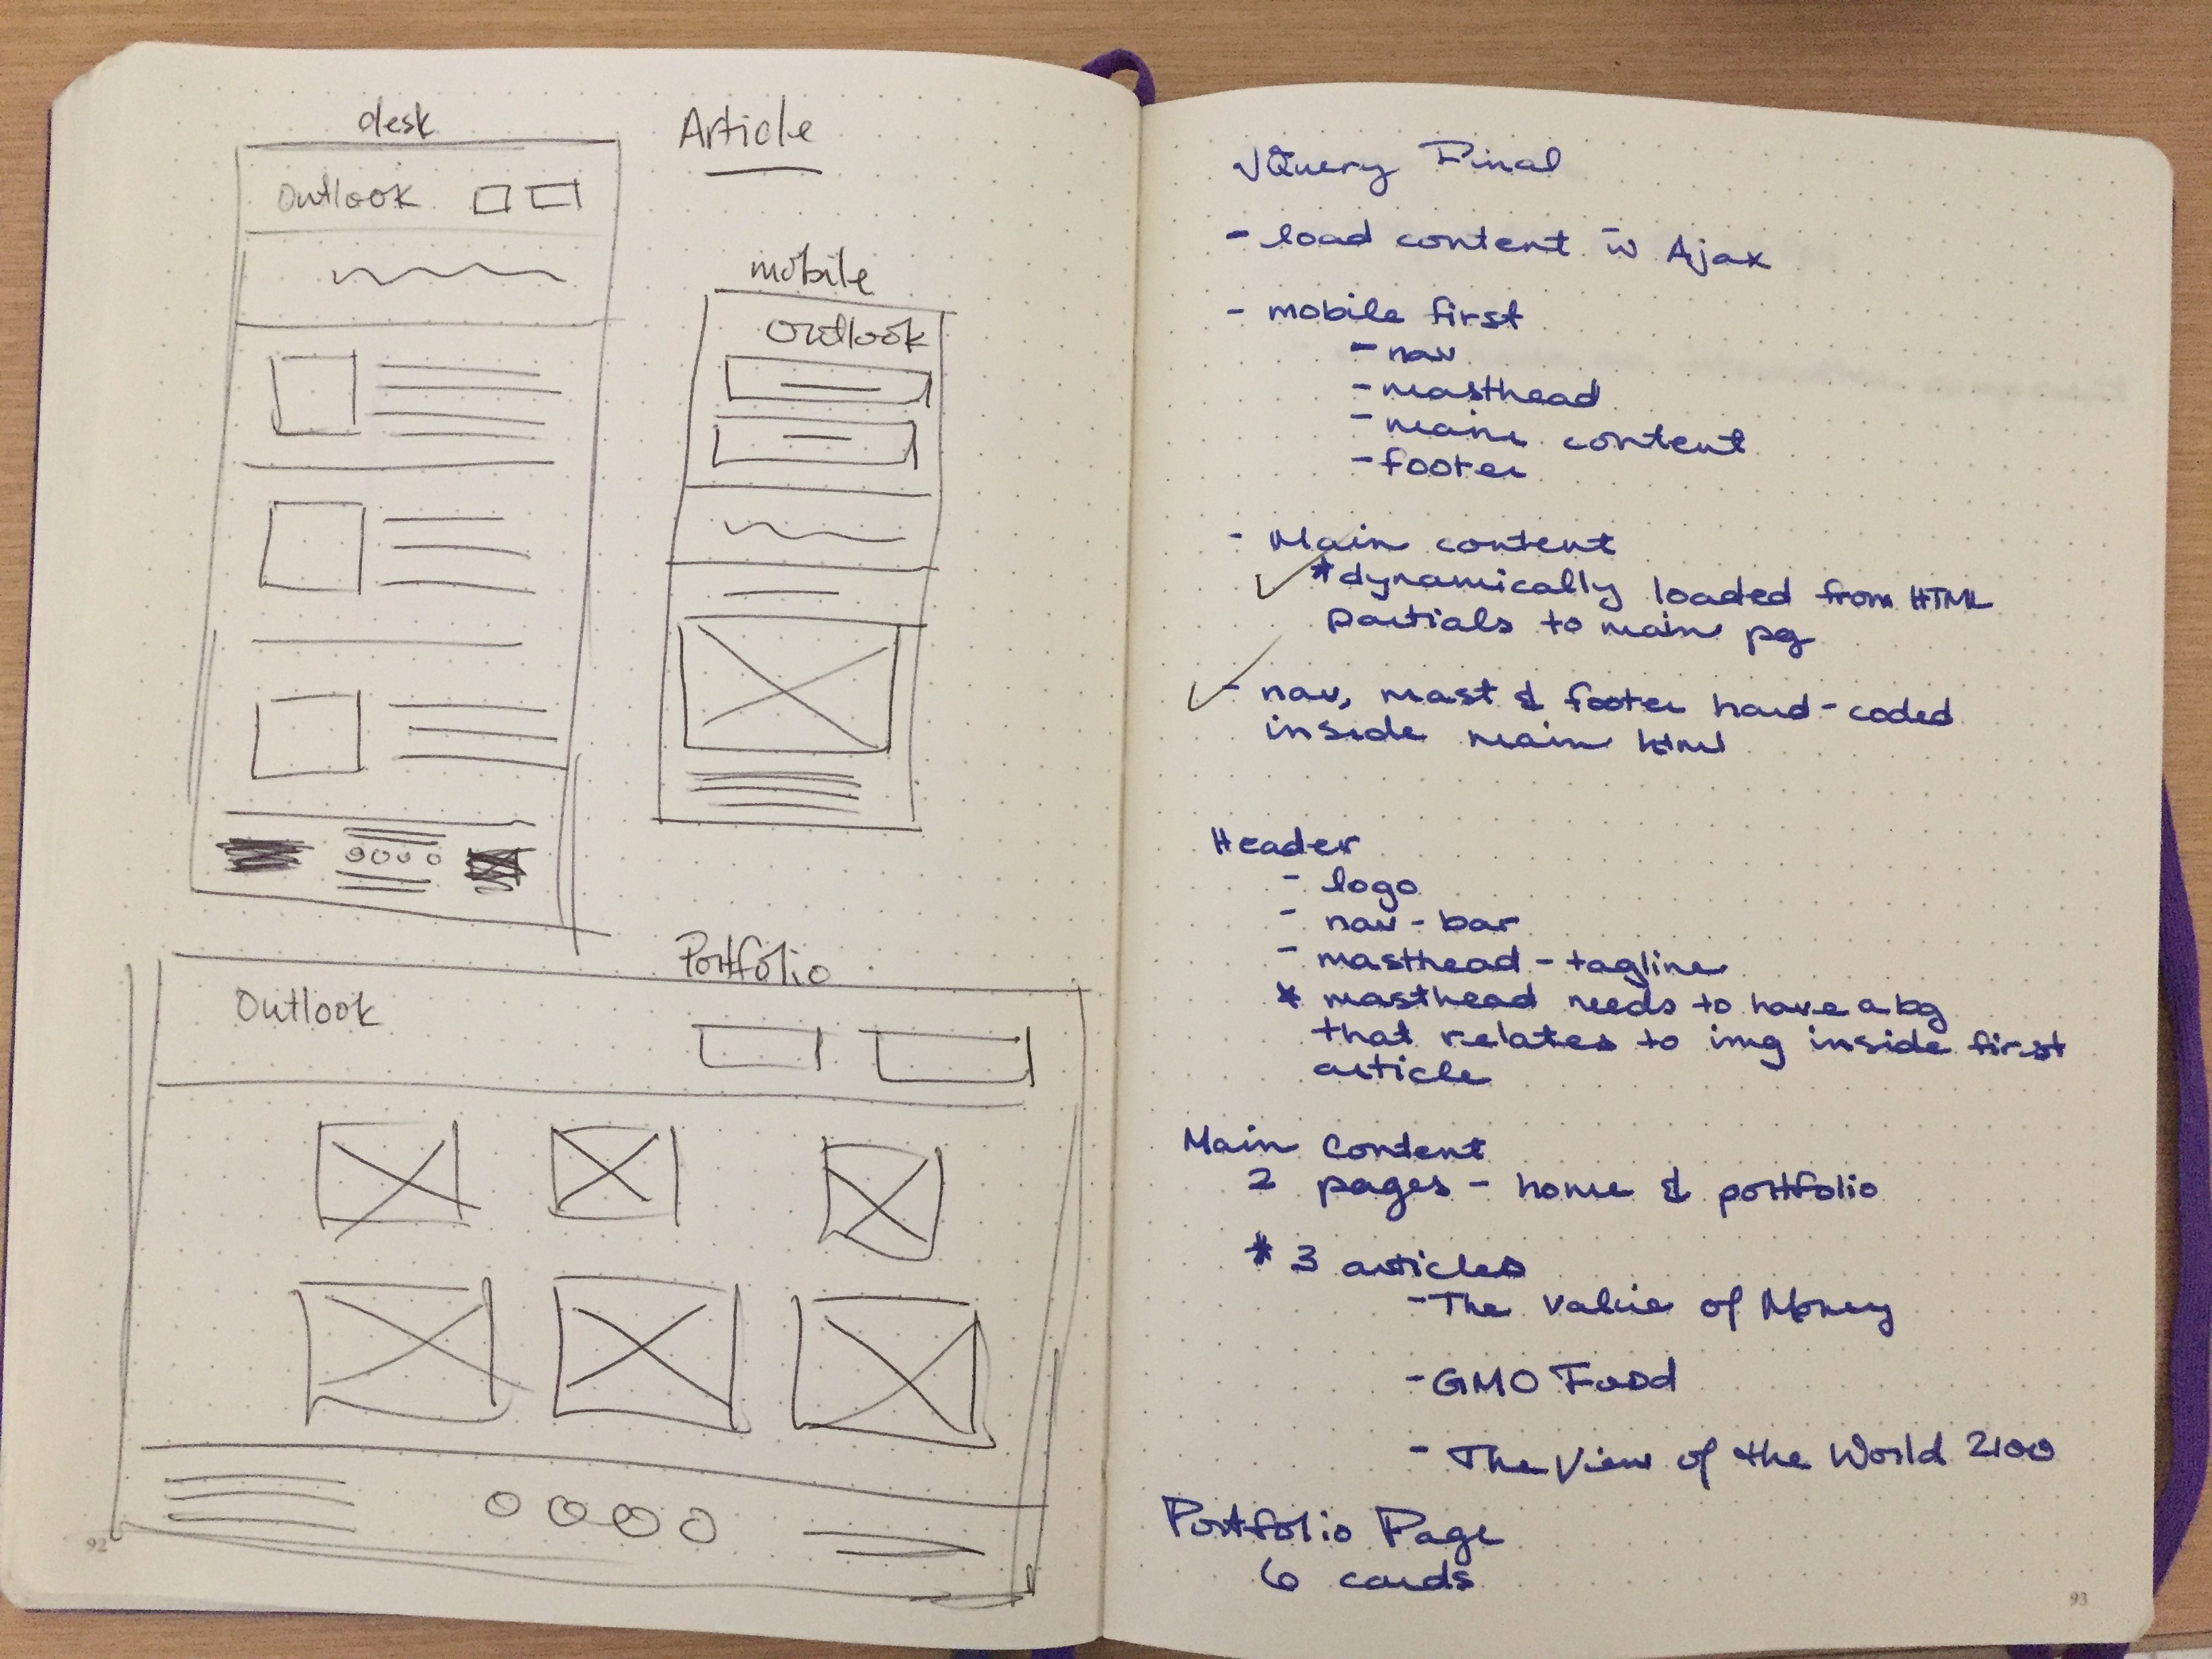 desk
Outlook
Article
mobile
Outlook
Portfolio
Outlook
92
JQuery Final
- load content w̄ Ajax
- mobile first
- nav
- masthead
- main content
- footer
- Main content
* dynamically loaded from HTML
partials to main pg
- nav, mast & footer hard-coded
inside main html
Header
- logo
- nav-bar
- masthead - tagline
* masthead needs to have a bg
that relates to img inside first
article
Main Content
2 pages - home & portfolio
* 3 articles
- The Value of Money
- GMO Food
- The View of the World 2100
Portfolio Page
6 cards
93